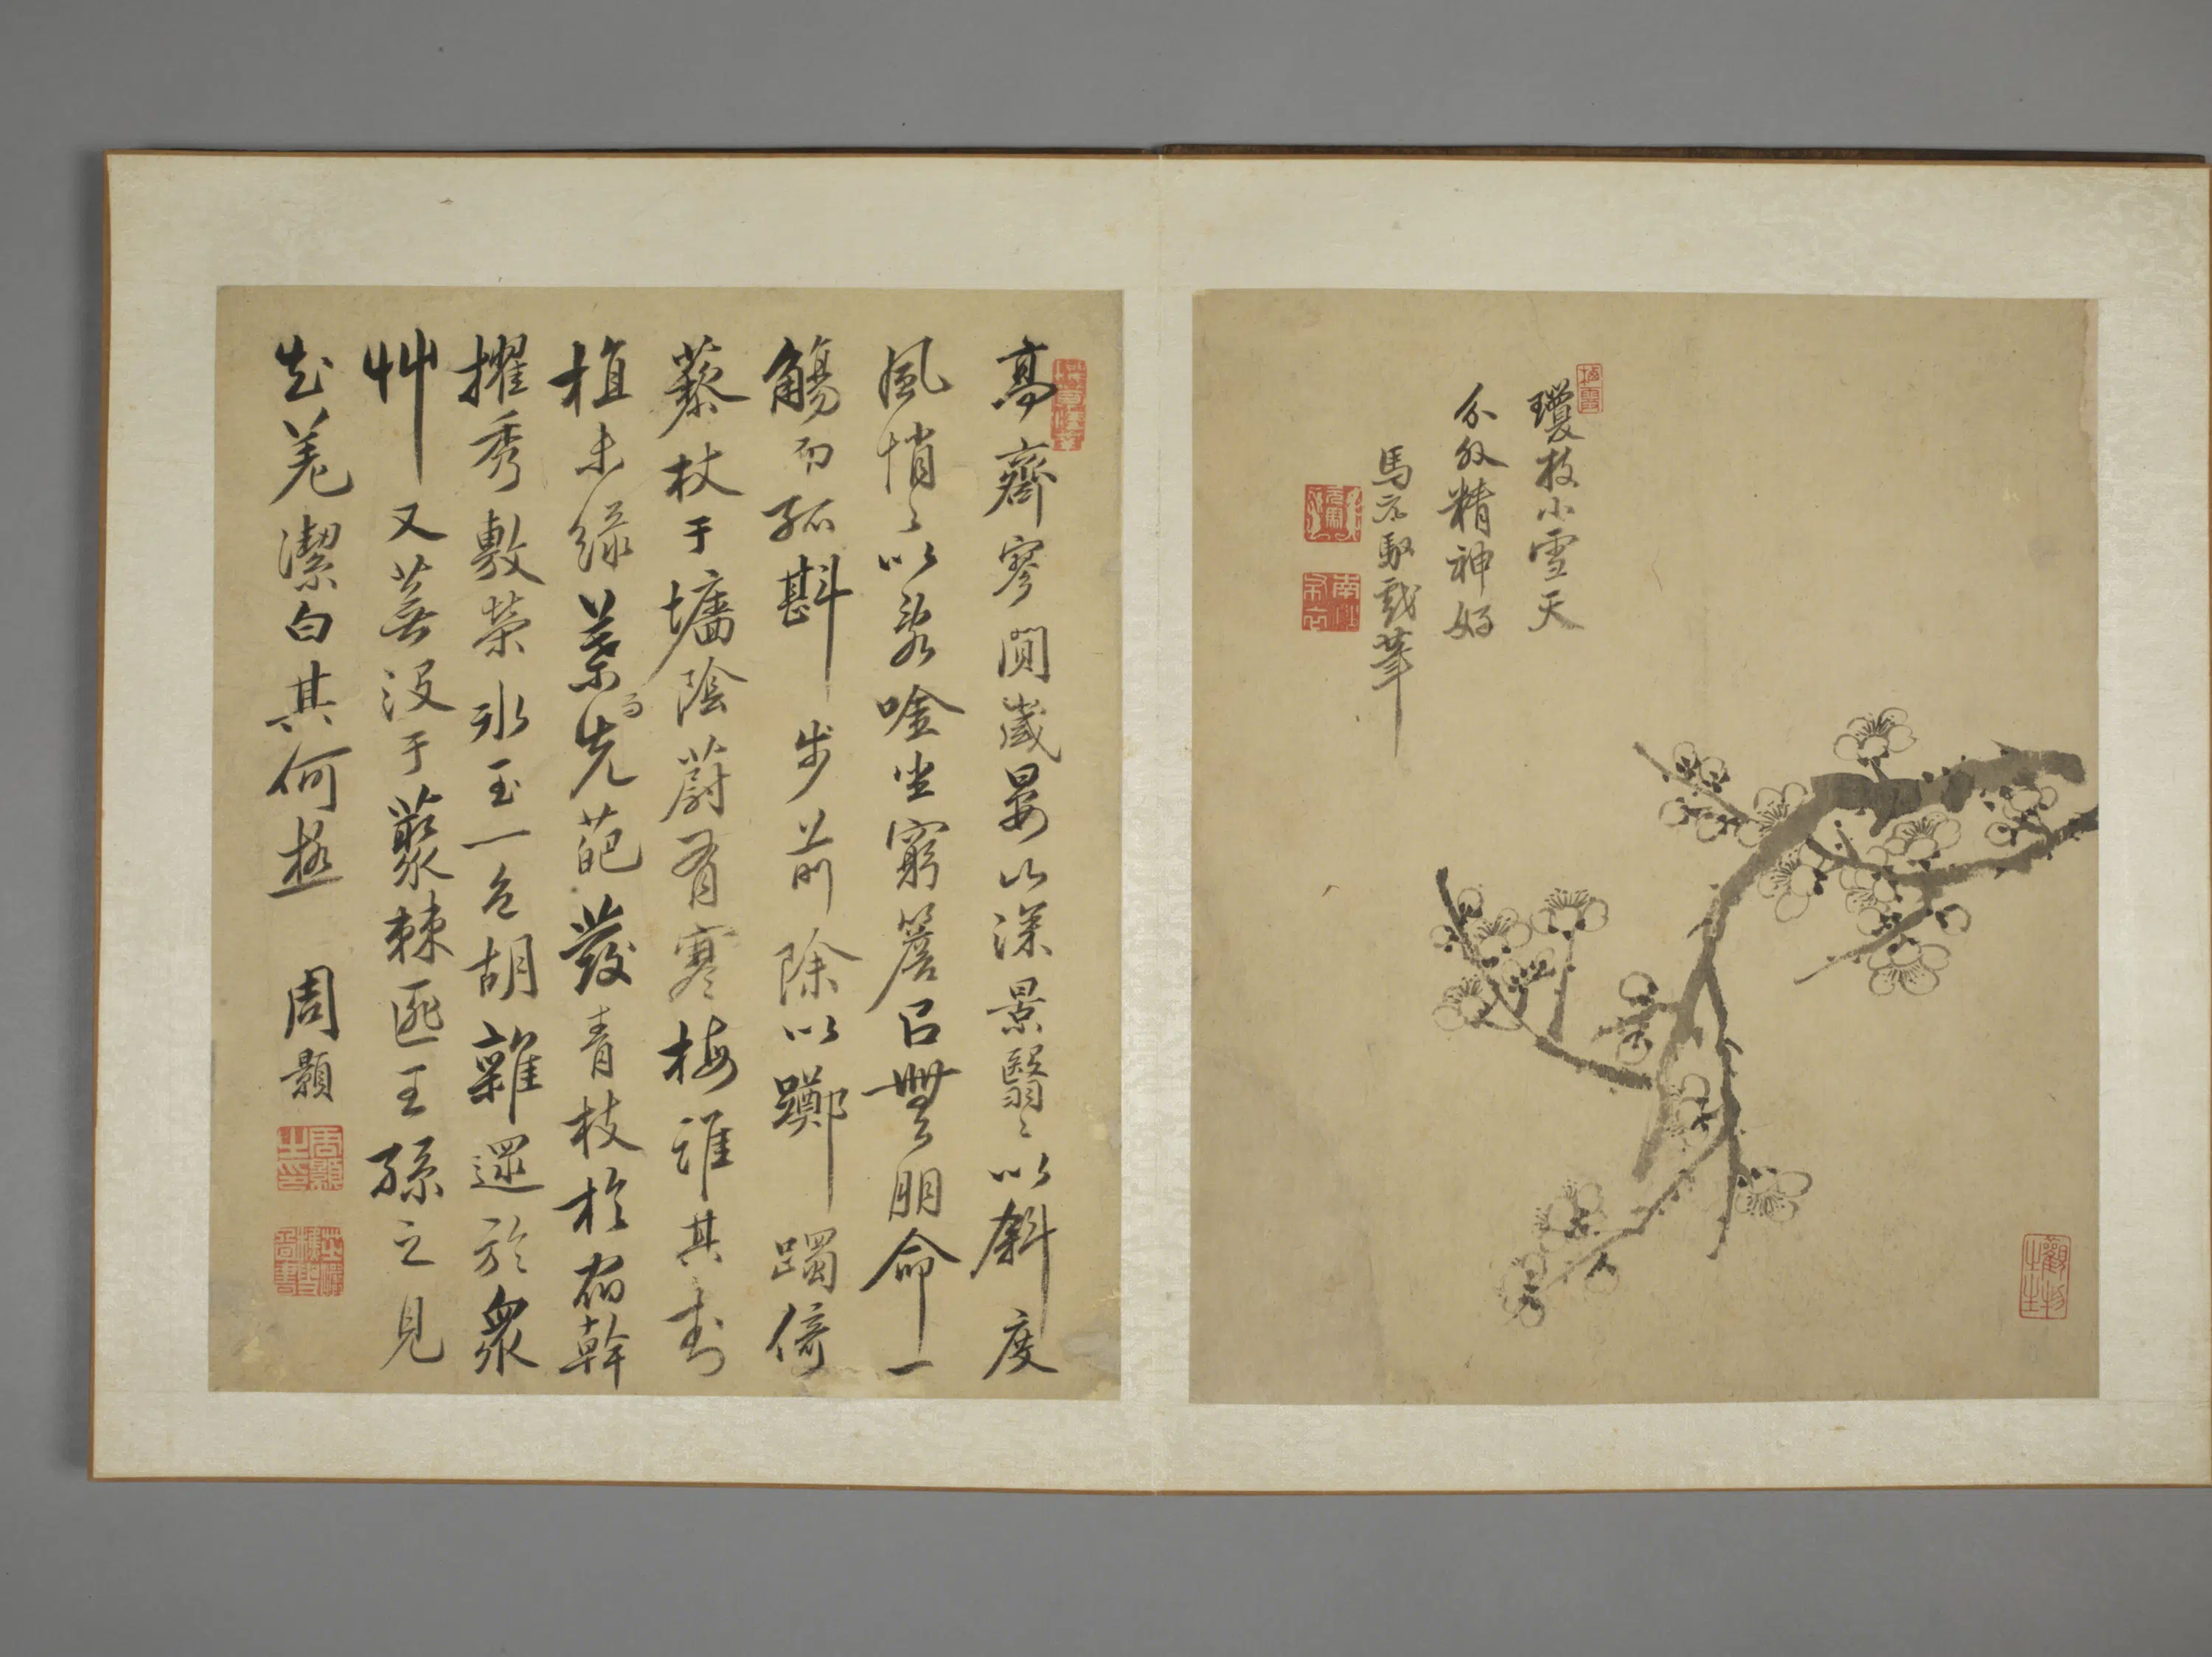 瓊枝小雪天
分外精神好
馬元馭戲筆
高齋寥闃歲晏山深景翳〻以斜度
風悄〻以裂唫坐窮簷已無朋命一
觴而孤斟步前除以躑躅倚
藜杖于墻陰蔚有寒梅誰其封
植未綠葉而先葩發青枝於宿幹
擢秀敷榮冰玉一色胡雜遝於衆
艸又蕪没于叢棘匪王孫之見
知羌潔白其何極 周顥
周顥之印